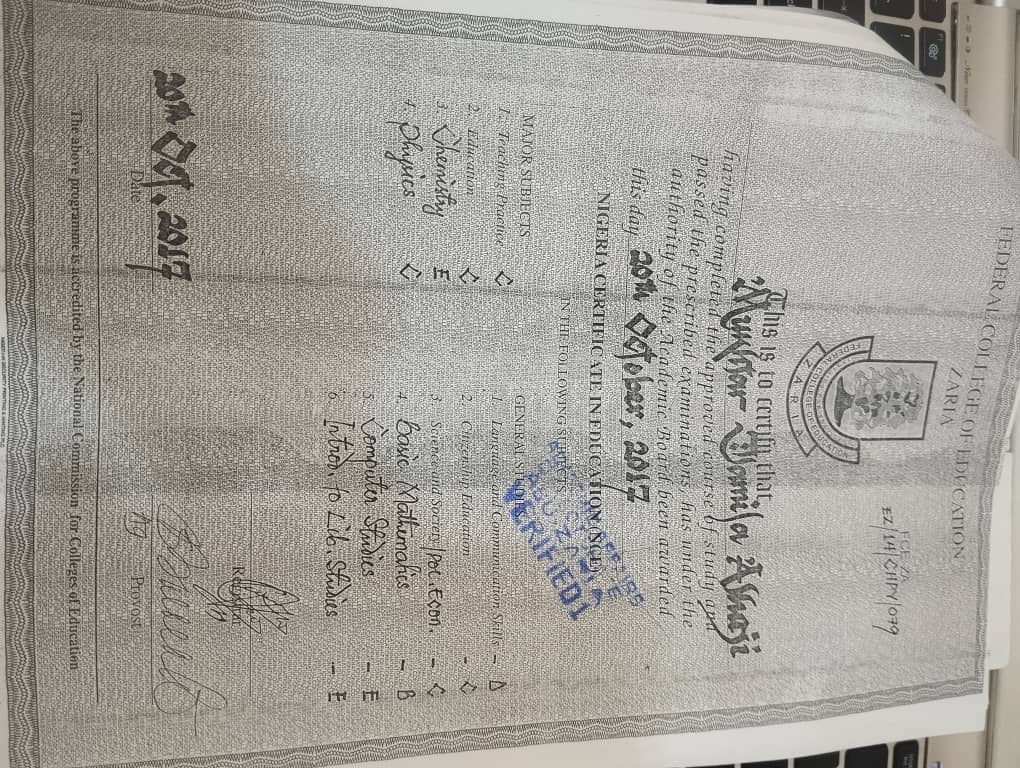 FEDERAL COLLEGE OF EDUCATION
ZARIA
FCE, ZA
EZ/14/CHPY/079
FEDERAL COLLEGE OF
ZARIA
This is to certify that
Jamila
having completed the approved course of study and
passed the prescribed examinations, has under the
authority of the Academic Board been awarded
this day 20th October, 2017
NIGERIA CERTIFICATE IN EDUCATION (NCE)
IN THE FOLLOWING SUBJECTS
MAJOR SUBJECTS
1. Teaching Practice C
2. Education C
3. Chemistry E
4. Physics C
GENERAL STUDIES
1. Language and Communication Skills - D
2. Citizenship Education - C
3. Science and Society/Pol Econ. - C
4. Basic Mathematics - B
5. Computer Studies - E
6. Intron to Lib. Studies - E
A.B.U. ZARIA
VERIFIED 1
Registrar
20th Oct, 2017
Date
Ag Provost
The above programme is accredited by the National Commission for Colleges of Education